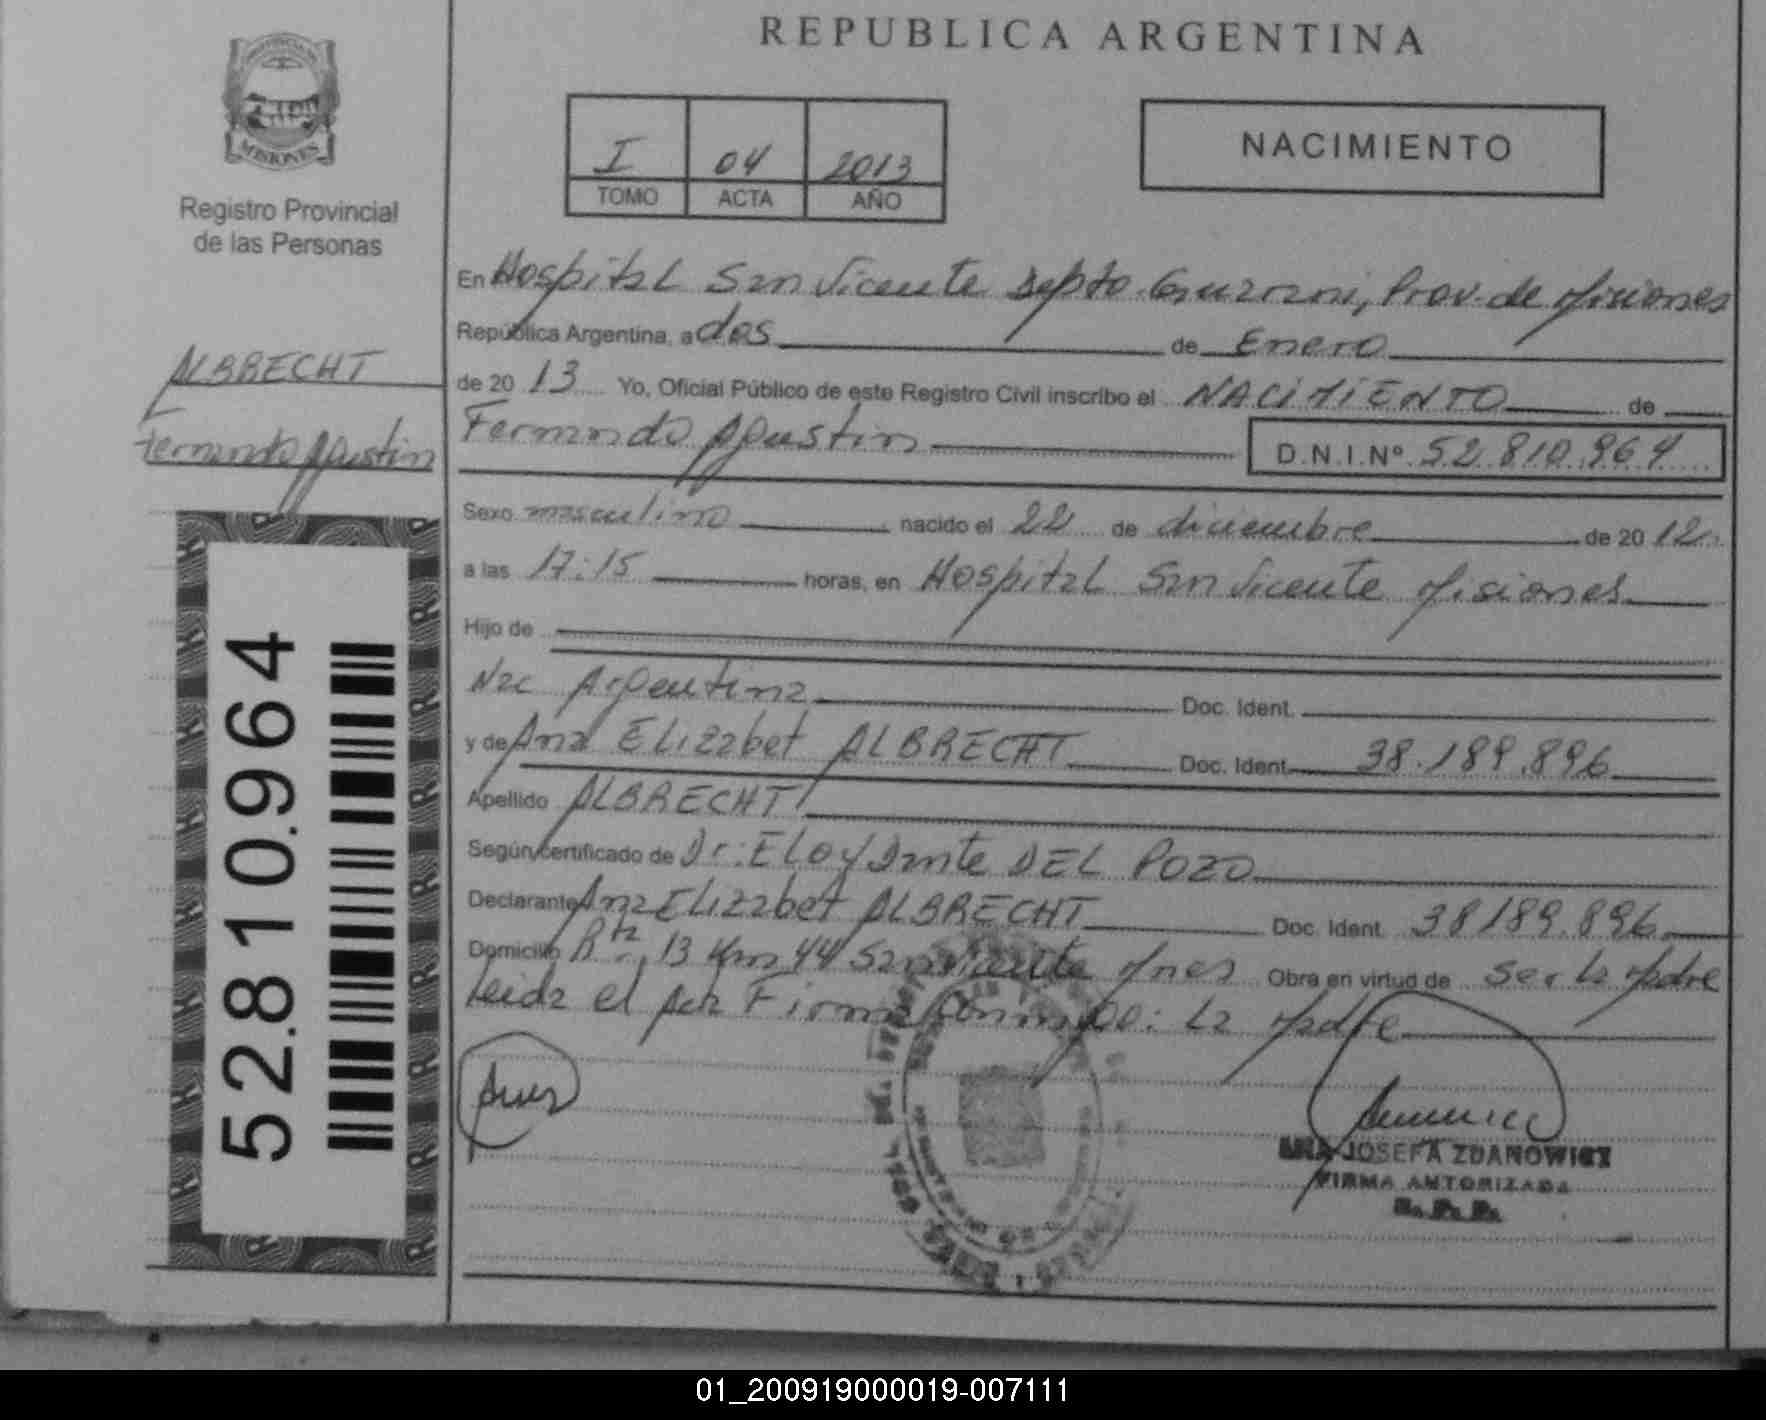 REPUBLICA ARGENTINA
PROVINCIA DE
MISIONES
Registro Provincial
de las Personas
I 04 2013
TOMO ACTA AÑO
NACIMIENTO
En Hospital San Vicente Depto. Guarani, Prov. de Misiones
República Argentina, a dos de Enero
de 20 13 Yo, Oficial Público de este Registro Civil inscribo el NACIMIENTO de
Fernando Agustin D.N.I.Nº 52.810.964
ALBRECHT
Fernando Agustin
Sexo masculino nacido el 22 de diciembre de 20 12
a las 17:15 horas, en Hospital San Vicente Misiones
Hijo de
Nac Argentina Doc. Ident.
y de Ana Elizabet ALBRECHT Doc. Ident. 38.189.896
Apellido ALBRECHT
Según certificado de Dr: Eloy Dante DEL POZO
Declarante Ana Elizabet ALBRECHT Doc. Ident. 38189.896
Domicilio Rta. 13 Km 44 San Vicente Mnes Obra en virtud de ser la Madre
leida el acta Firma Conmigo: La Madre
52.810.964
ANA JOSEFA ZDANOWICZ
FIRMA AUTORIZADA
R. P. P.
01_200919000019-007111